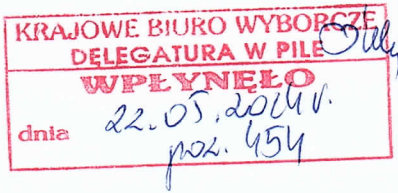 KRAJOWE BIURO WYBORCZE
DELEGATURA W PILE
WPŁYNĘŁO
dnia 22.05.2014r.
poz. 454